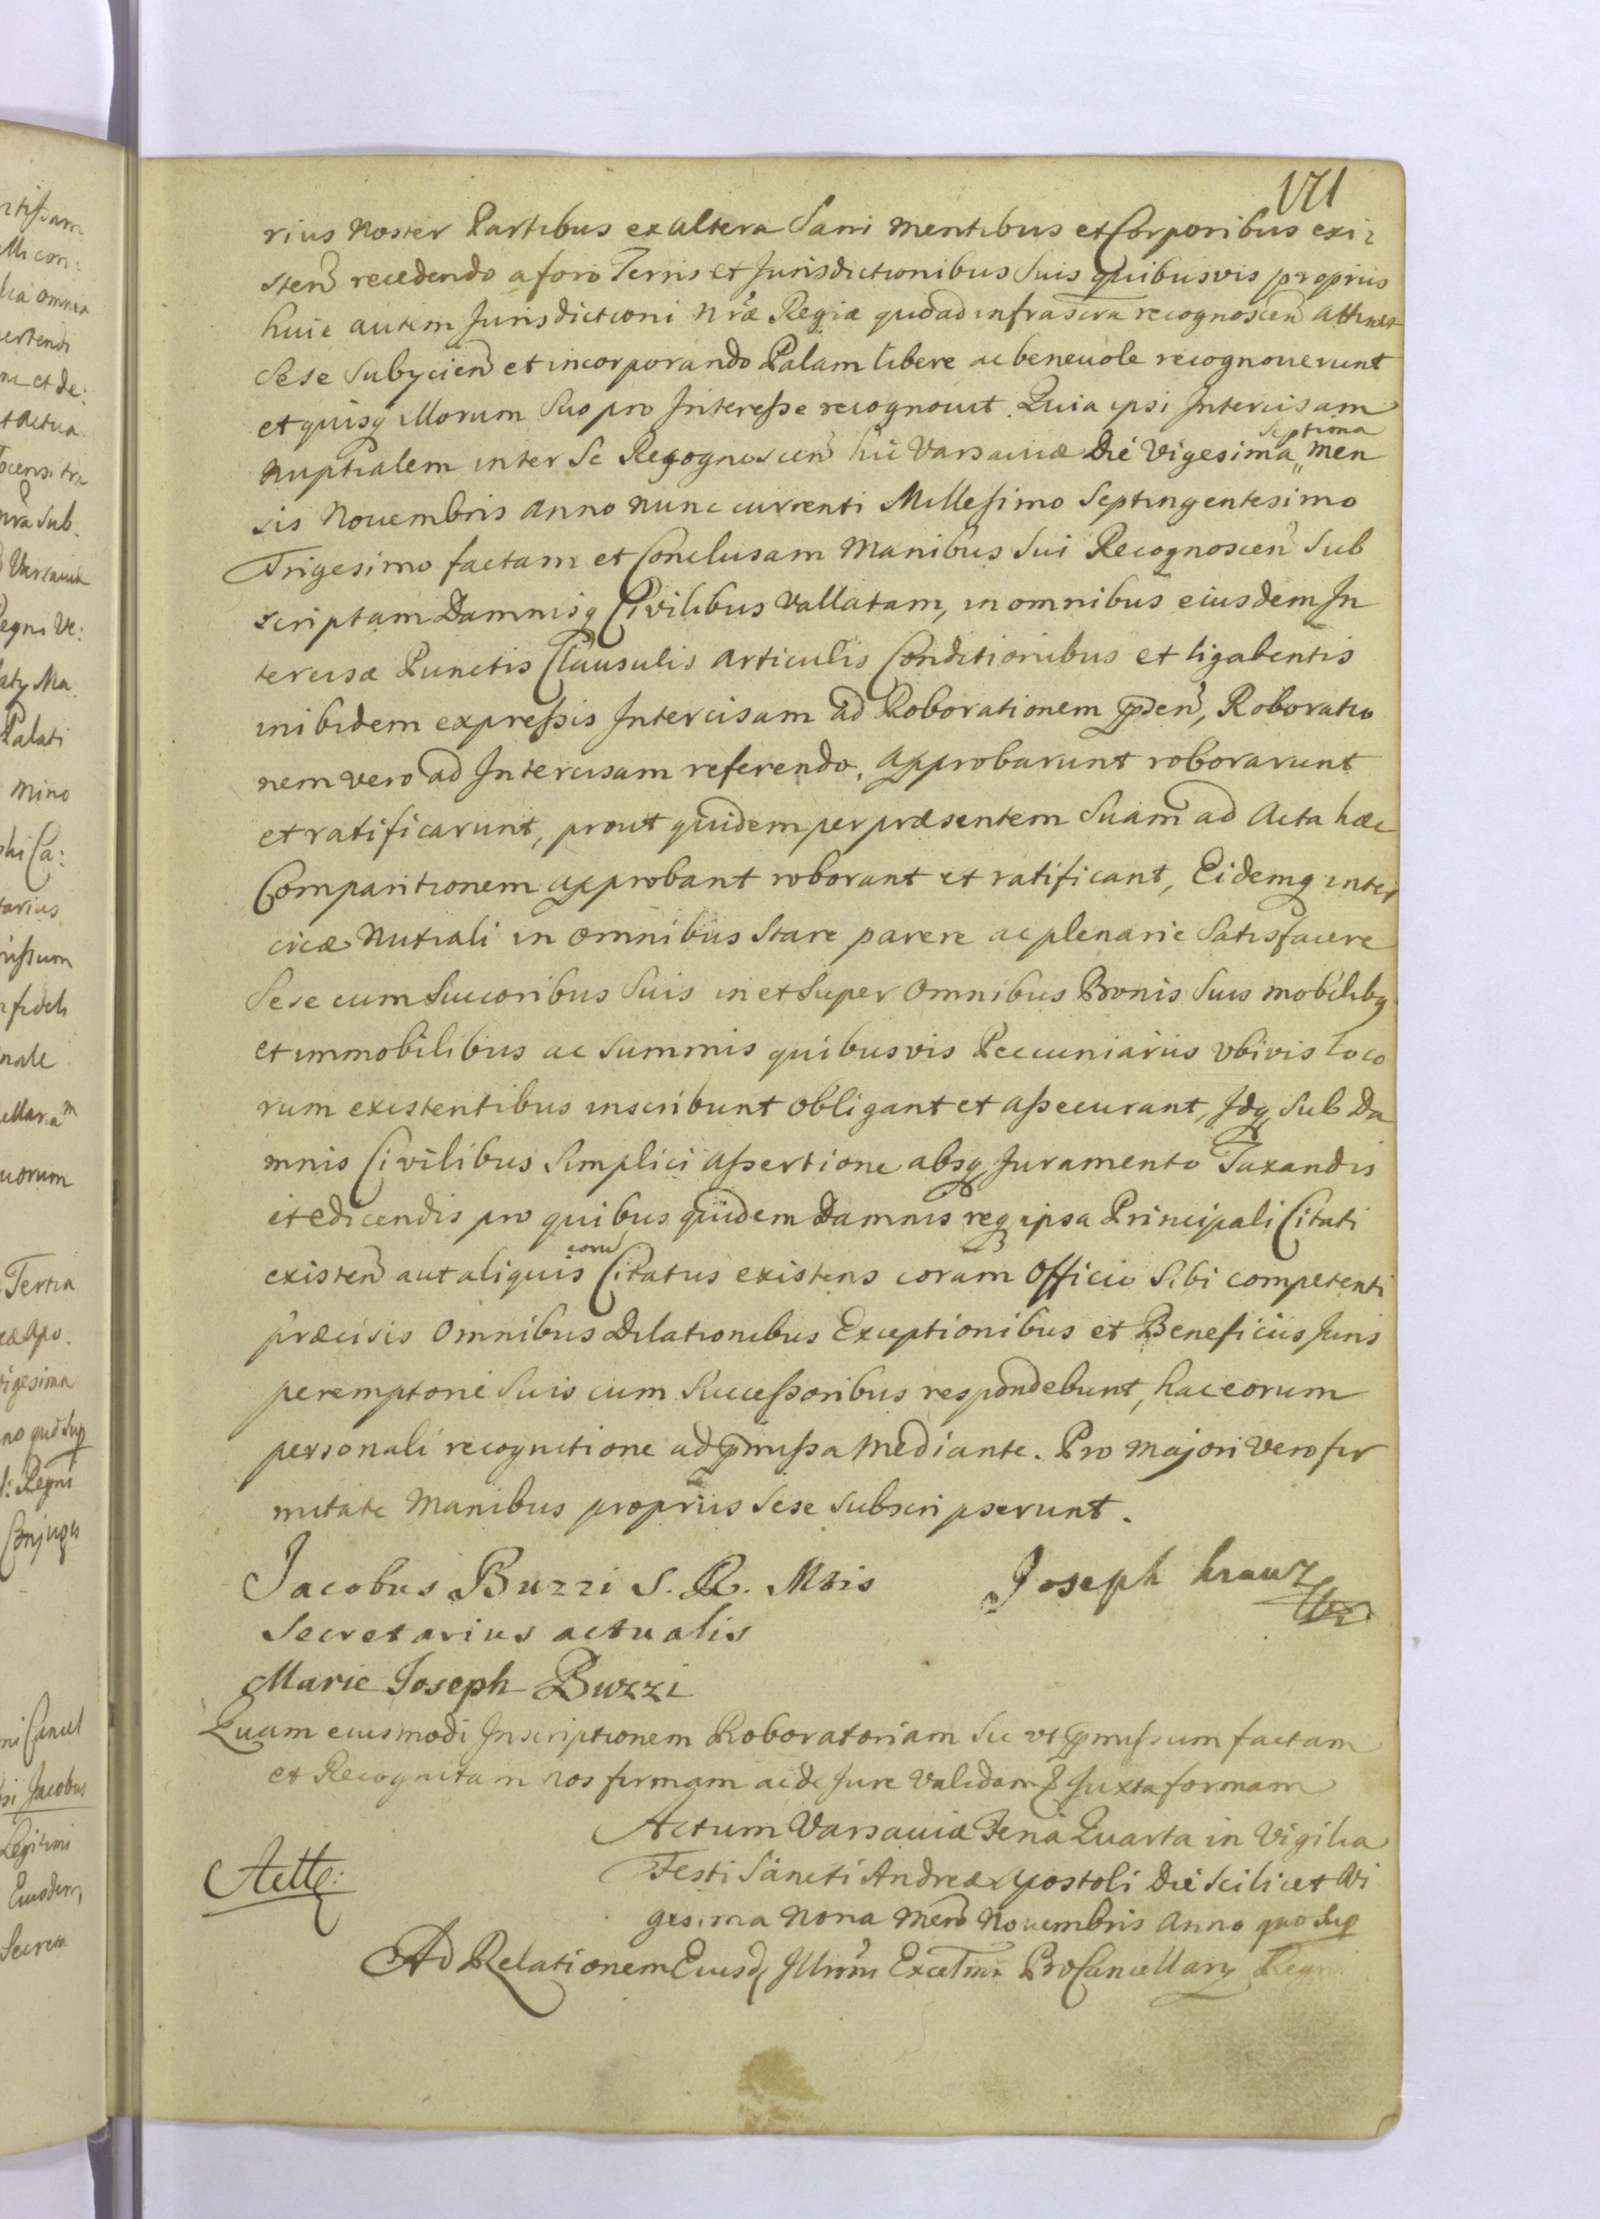 171
rius noster Partibus ex altera Sani mentibus et Corporibus exi
sten recedendo a foro Terris et Jurisdictionibus Suis quibusvis proprus
huic autem Jurisdictioni nrae Regiae quo ad infrascra recognoscen attinet
Sese Subycien et incorporando Palam libere ac beneuole recognouerunt
et quisq illorum Suo pro Interesse recognouit. Quia ipsi Intercisam
nuptialem inter Se Regognoscen hic Varsauiae Die Vigesima septima men
sis Nouembris anno nunc currenti Millesimo Septingentesimo
Trigesimo factam et Conclusam Manibus Sui Recognoscen Sub
scriptam Damnisq Civilibus Vallatam, in omnibus eiusdem In
tercisae Punctis Clausulis articulis Conditionibus et ligabentis
inibidem expressis Intercisam ad Roborationem pden, Roboratio
nem vero ad Intercisam referendo, approbarunt roborarunt
et ratificarunt, prout quidem per praesentem Suam ad Acta haec
Comparitionem approbant roborant et ratificant, Eidemq inter
cicae Nutiali in omnibus Stare parere ac plenarie Satisfacere
Sese cum Succoribus Suis in et Super Omnibus Bonis Suis mobilibq
et immobilibus ac Summis quibusvis Peccuniariis vbivis loco
rum existentibus inscribunt obligant et assecurant, Idq Sub Da
mnis Civilibus Simplici assertione absq Juramento Taxandis
et edicendis pro quibus quidem Damnis req ipsa Principali Citati
existen aut aliquis eorum Citatus existens coram Officio Sibi competenti
praecisis Omnibus Dilationibus Exceptionibus et Beneficiis Juris
peremptorie Suis cum Successoribus respondebunt, hac eorum
personali recognitione ad pmissa Mediante. Pro majori vero fir
mitate Manibus propriis Sese subscripserunt.
Jacobus Buzzi S. R. Mtis
Secretarius actualis
Joseph Krauz
Marie Joseph Buzzi
Quam eiusmodi Inscriptionem Roboratoriam Sic vt pmissum factam
et Recognitam nos firmam ac de Jure Validam Juxta formam
Actum Varsauiae Feria Quarta in Vigilia
Festi Sancti Andreae Apostoli Die Scilicet Vi
gesima Nona Men Nouembris Anno quo Sup
Ad Relationem Eiusd Illrmi Excelmi ProCancellary Regni